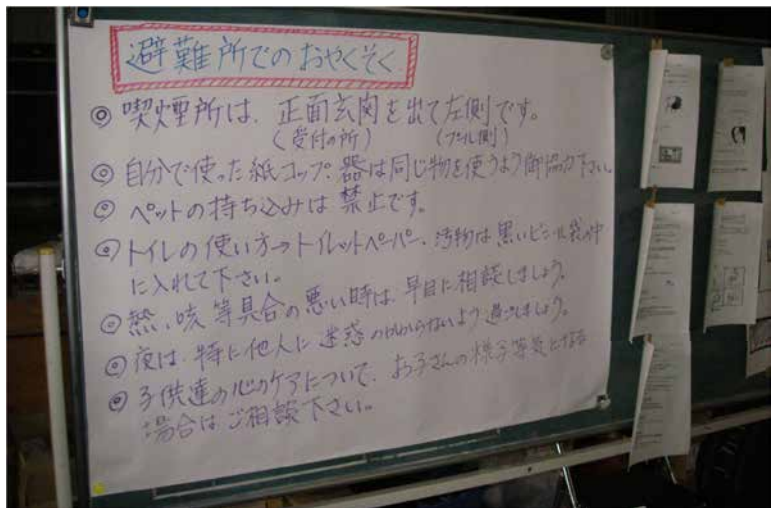 避難所でのおやくそく
◎ 喫煙所は、正面玄関を出て左側です。
(受付の所) (プール側)
◎ 自分で使った紙コップ、器は同じ物を使うよう御協力下さい。
◎ ペットの持ち込みは禁止です。
◎ トイレの使い方→トイレットペーパー、汚物は黒いビニール袋の中
に入れて下さい。
◎ 熱、咳等具合の悪い時は、早目に相談しましょう。
◎ 夜は、特に他人に迷惑のかからないよう過ごしましょう。
◎ 子供達の心のケアについて、お子さんの様子等気になる
場合はご相談下さい。